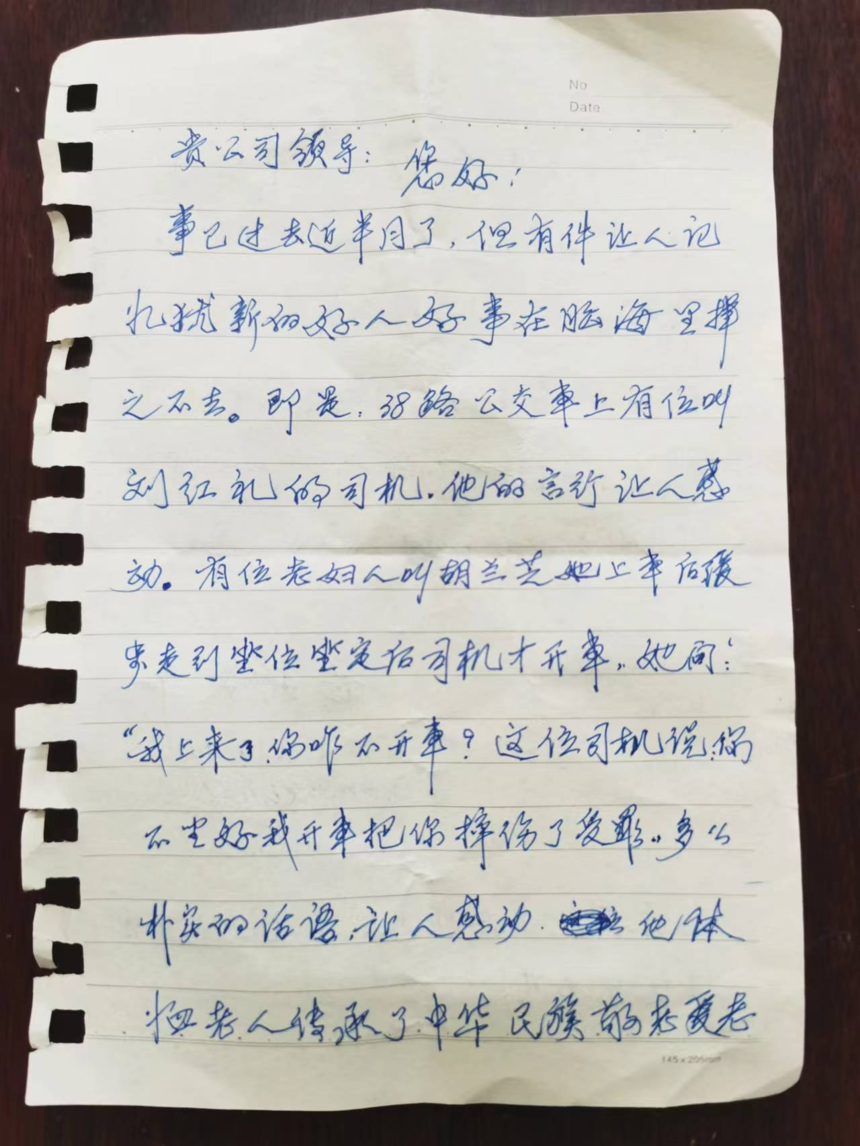 No
Date
贵公司领导: 您好!
事已过去近半月了,但有件让人记
忆犹新的好人好事在脑海里挥
之不去。即是:38路公交车上有位叫
刘红礼的司机.他的言行让人感
动。有位老妇人叫胡兰芝她上车后缓
步走到坐位坐定后司机才开车。她问:
“我上来了,你咋不开车?这位司机说,你
不坐好我开车把你摔伤了受罪。多么
朴实的话语,让人感动.他体
恤老人传承了中华民族敬老爱老
145×205mm